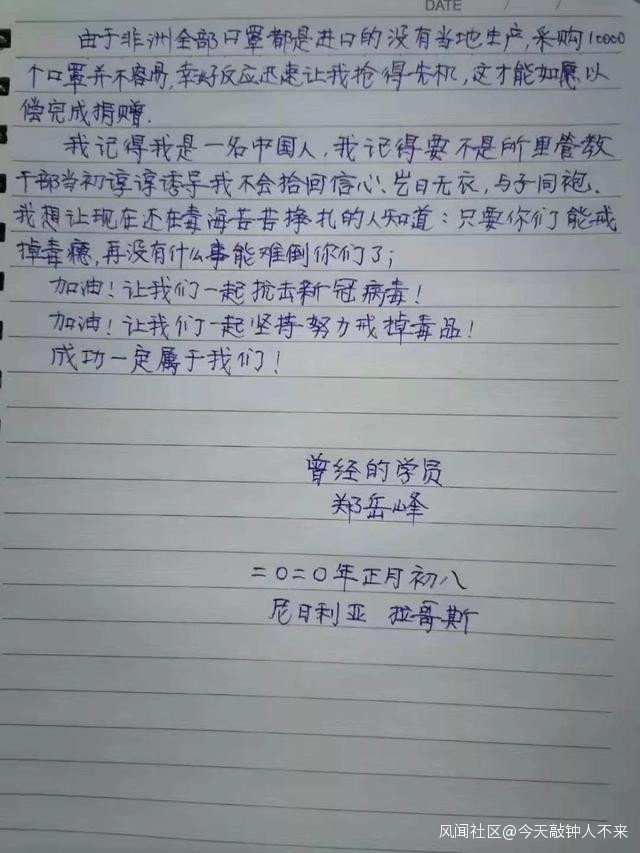 DATE / /
由于非洲全部口罩都是进口的没有当地生产,采购10000
个口罩并不容易,幸好反应迅速让我抢得先机,这才能如愿以
偿完成捐赠.
我记得我是一名中国人,我记得要不是所里管教
干部当初谆谆诱导我不会拾回信心.岂曰无衣,与子同袍.
我想让现在还在毒海苦苦挣扎的人知道:只要你们能戒
掉毒瘾,再没有什么事能难倒你们了;
加油!让我们一起抗击新冠病毒!
加油!让我们一起坚持努力戒掉毒品!
成功一定属于我们!
曾经的学员
郑岳峰
二〇二〇年正月初八
尼日利亚 拉哥斯
风闻社区@今天敲钟人不来